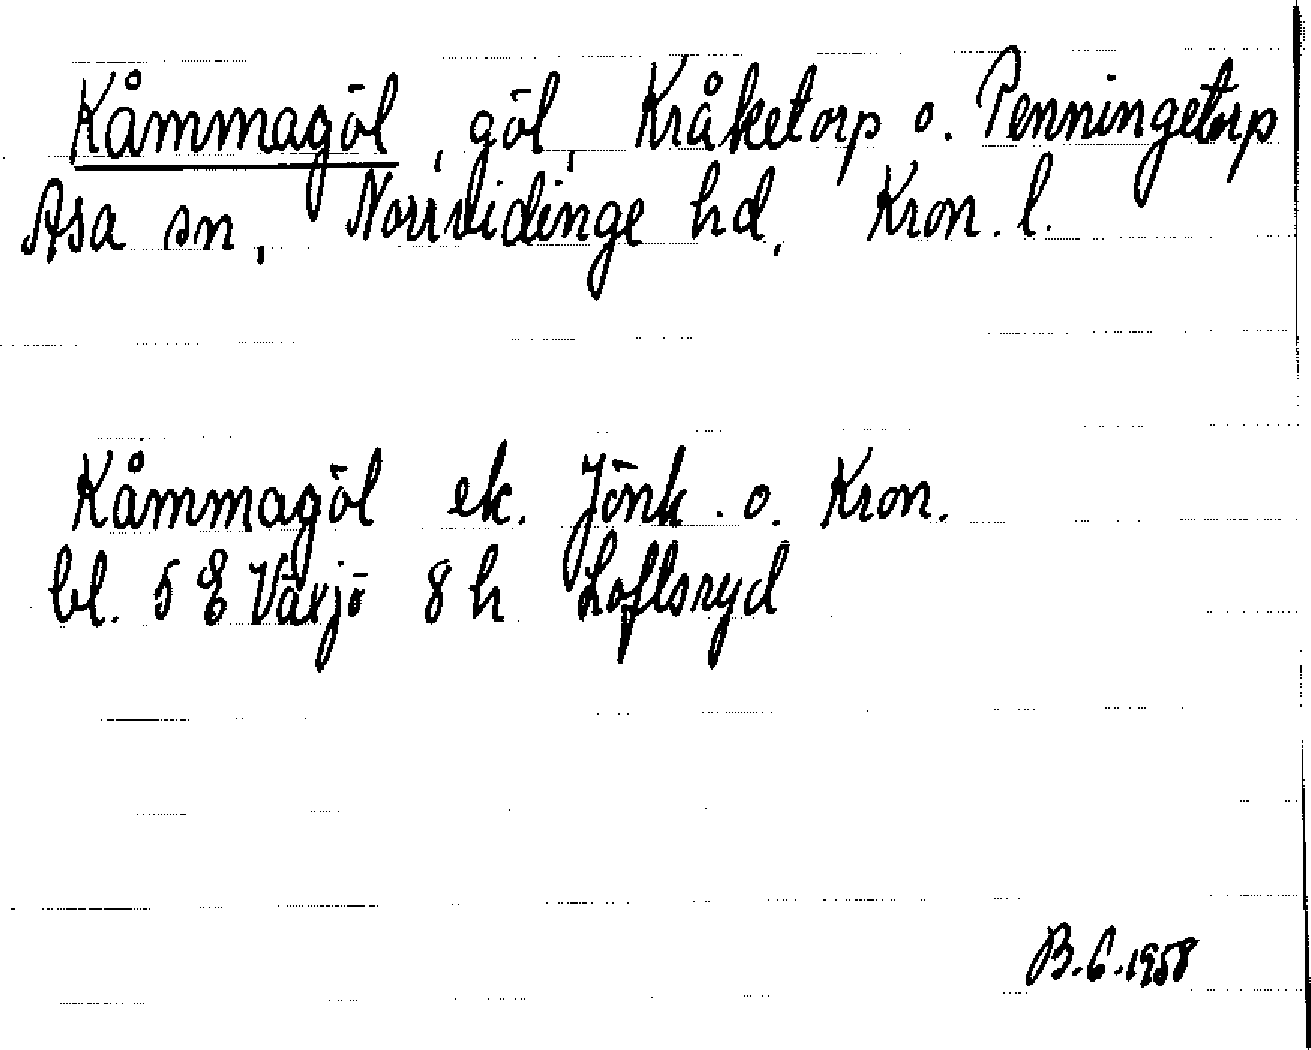 Kåmmagöl, göl, Kråketorp o. Penningetorp
Asa sn, Norrvidinge hd, Kron. l.
Kåmmagöl ek. Jönk. o. Kron.
bl. 5 E Växjö 8 h Loftsryd
B.G.1958